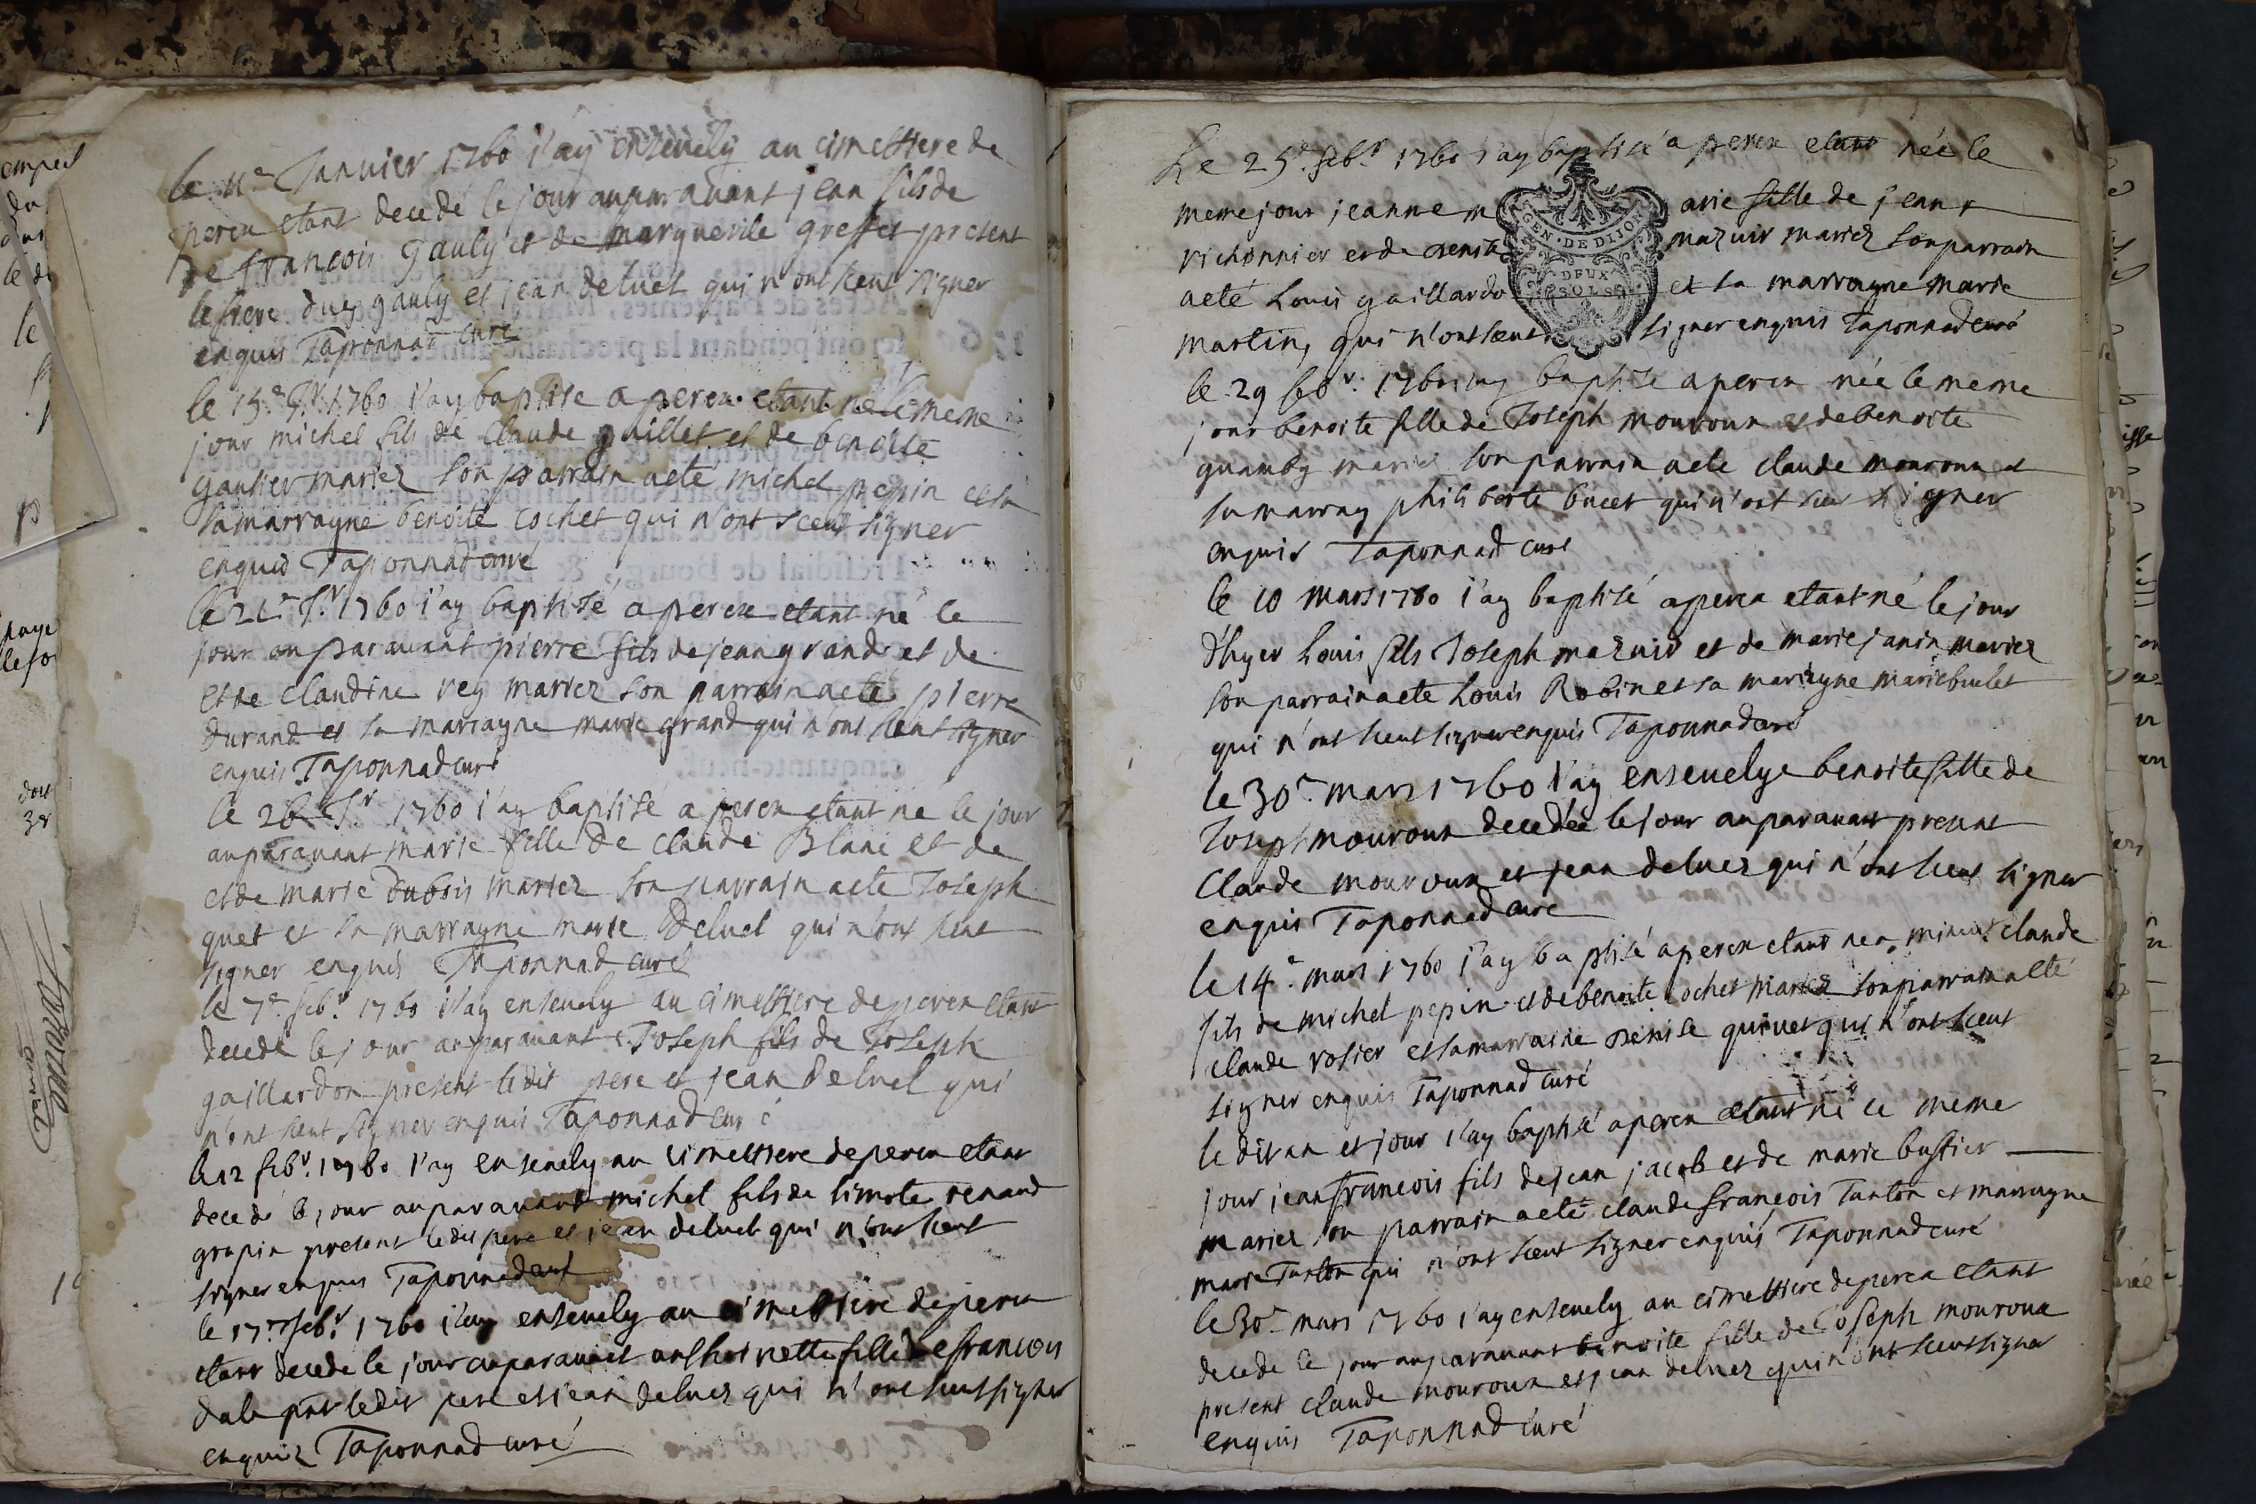 le 11e Janvier 1760 i'ay ensevely au cimettiere de
peren etant decedé le jour auparavant jean fils de
de francois gauly et de marguerite greffet present
le frere du gauly et jean deluet qui n'ont sceut signer
enquis Taponnad curé
le 15e Jr. 1760 i'ay baptise a peren etant né le meme
jour michel fils de Claude guillet et de benoite
gautier mariez son parrain aeté michel pepin et sa
sa marrayne benoite cochet qui n'ont sceut signer
enquis Taponnad curé
le 21e Jr 1760 i'ay baptisé a peren etant né le
jour auparavant pierre fils de jean grand et de
et de claudine rey mariez son parrain aeté pierre
durand et sa marrayne marie grand qui n'ont sceut signer
enquis Taponnad curé
le 26 Jr 1760 i'ay baptisé a peren etant né le jour
auparavant marie fille de claude Blanc et de
et de marie dubois mariez son parrain aeté Joseph
quet et sa marrayne marie deluet qui n'ont sceut
signer enquis Taponnad curé
le 7e febr. 1760 i'ay ensevely au cimettiere de peren etant
decedé le jour auparavant Joseph fils de Joseph
gaillardon present ledit pere et jean deluet qui
n'ont sceut signer enquis Taponnad curé
le 12 febr. 1760 i'ay ensevely au cimettiere de peren etant
decedé le jour auparavant michel fils de timote renaud
grapin present ledit pere et jean deluet qui n'ont sceut
signer enquis Taponnad curé
le 17e febr. 1760 i'ay ensevely au cimettiere de peren
etant decede le jour auparavant anthoinette fille de francois
dale pnt ledit pere et jean deluez qui n'ont sceut signer
enquiz Taponnad curé
Le 25e. febr. 1760 i'ay baptisé a peren etant née le
meme jour jeanne marie fille de jean
richonnier et de denise mazuir mariez son parrain
aeté Louis gaillardo et sa marrayne marie
martin, qui n'ont sceut signer enquis Taponnad curé
GEN. DE DIJON
DEUX
SOLS
le 29 febr. 1760 i'ay baptise a peren née le meme
jour benoite fille de Joseph mouroux et de benoite
guauby mariez son parrain aeté claude mouroux et
sa marray philiberte bucet qui n'ont sceu signer
enquis Taponnad curé
le 10 mars 1760 i'ay baptisé a peren etant né le jour
d'hyer Louis fils Joseph mazuir et de marie janin mariez
son parrain aeté Louis Robin et sa marrayne marie buclet
qui n'ont sceut signer enquis Taponnad curé
le 30e mars 1760 i'ay ensevelye benoite fille de
Joseph mouroux decedée le jour auparavant present
Claude mouroux et jean deluez qui n'ont sceut signer
enquis Taponnad curé
le 14e. mars 1760 i'ay baptisé a peren etant né a minuit claude
fils de michel pepin et de benoite cochet mariez son parrain aeté
claude rosier et sa marraine denise quivet qui n'ont sceut
signer enquis Taponnad curé
le dit an et jour i'ay baptisé a peren etant né le meme
jour jean francois fils de jean jacob et de marie bustier
mariez son parrain aeté claude francois Tanton et marrayne
marie Tanton qui n'ont sceut signer enquis Taponnad curé
le 30e mars 1760 i'ay ensevely au cimettiere de peren etant
decede le jour auparavant benoite fille de Joseph mouroux
present claude mouroux et jean deluez qui n'ont sceut signer
enquis Taponnad curé